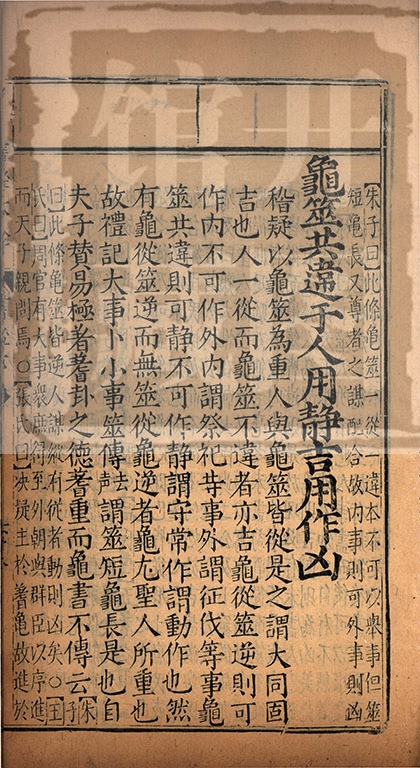 【朱子曰】此條龜筮一從一違本不可以舉事但筮
短龜長又尊者之謀配合故内事則可外事則凶
龜筮共違于人用静吉用作凶
稽疑以龜筮為重人與龜筮皆從是之謂大同固
吉也人一從而龜筮不違者亦吉龜從筮逆則可
作内不可作外内謂祭祀等事外謂征伐等事龜
筮共違則可静不可作静謂守常作謂動作也然
有龜從筮逆而無筮從龜逆者龜尤聖人所重也
故禮記大事卜小事筮傳謂筮短龜長是也自
夫子賛易極著蓍卦之徳蓍重而龜書不傳云【朱子
曰】此條龜筮皆逆人謀縱有從者動則凶矣〇【王
氏曰】周官有大事衆庶得至外朝與群臣以序進
而天子親問焉〇【張氏曰】决疑主於蓍龜故進於